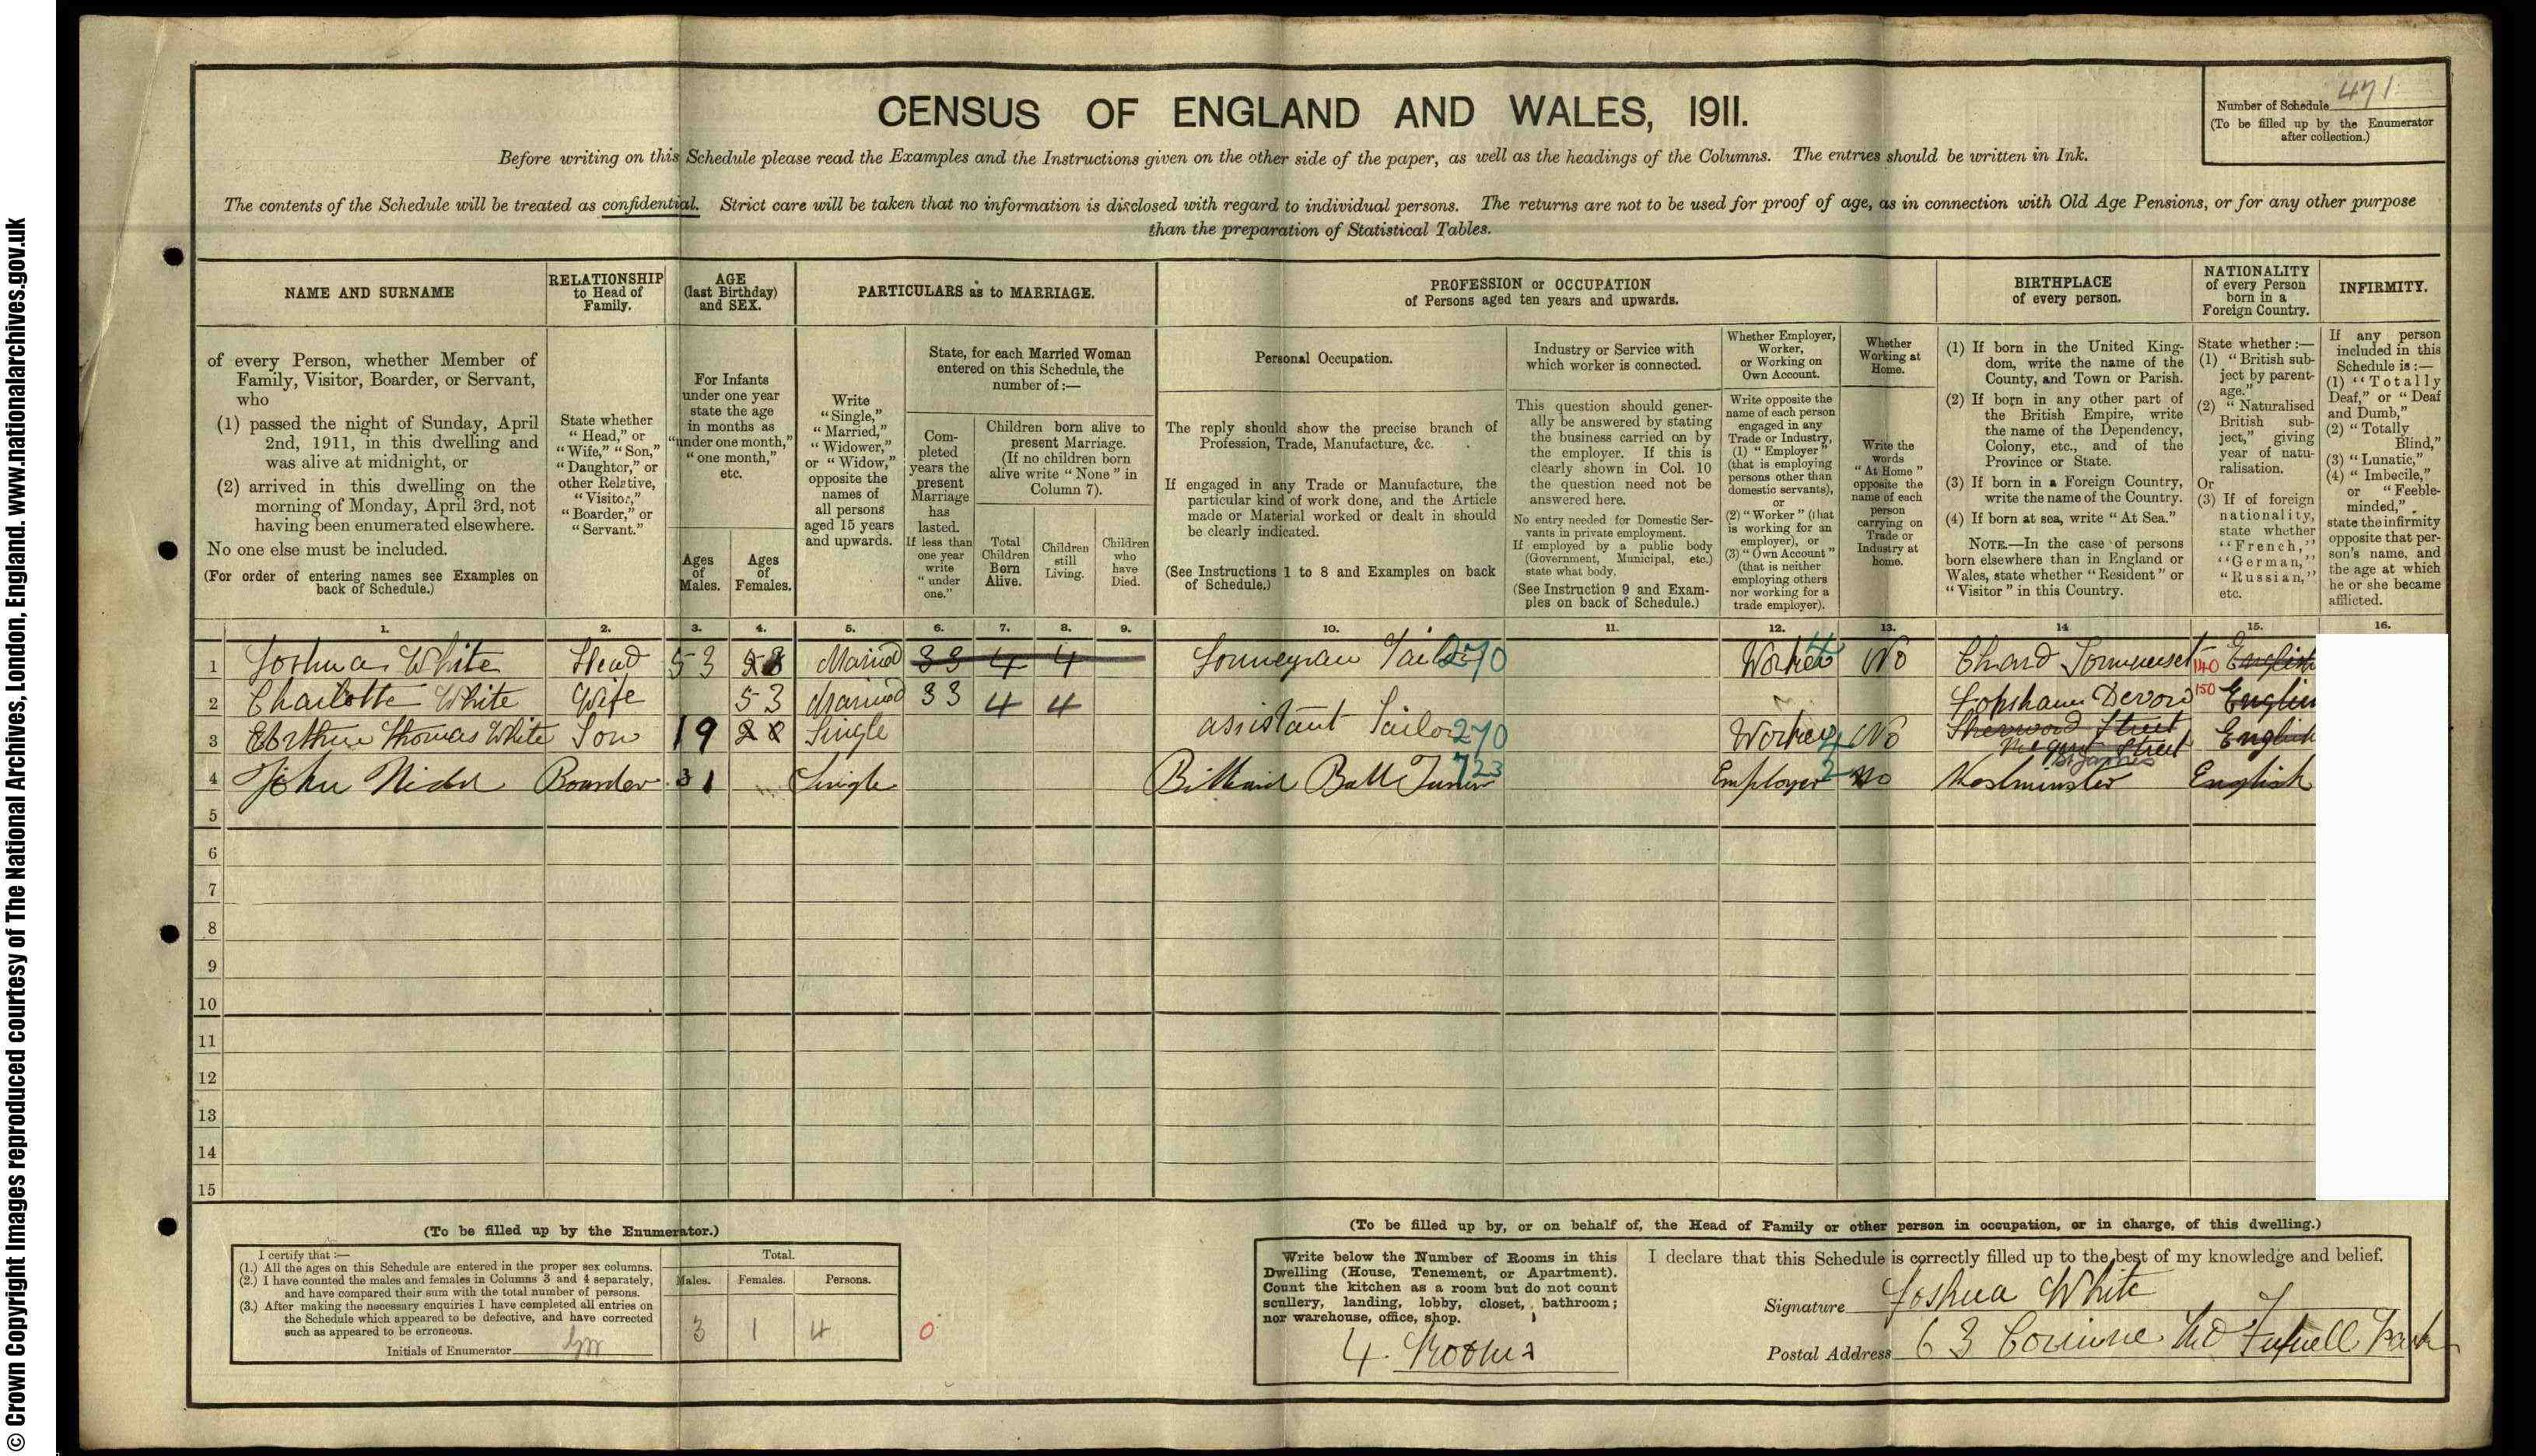 © Crown Copyright Images reproduced courtesy of The National Archives, London, England. www.nationalarchives.gov.uk
CENSUS OF ENGLAND AND WALES, 1911.
Number of Schedule 471
(To be filled up by the Enumerator
after collection.)
Before writing on this Schedule please read the Examples and the Instructions given on the other side of the paper, as well as the headings of the Columns. The entries should be written in Ink.
The contents of the Schedule will be treated as confidential. Strict care will be taken that no information is disclosed with regard to individual persons. The returns are not to be used for proof of age, as in connection with Old Age Pensions, or for any other purpose
than the preparation of Statistical Tables.
NAME AND SURNAME
of every Person, whether Member of
Family, Visitor, Boarder, or Servant,
who
(1) passed the night of Sunday, April
2nd, 1911, in this dwelling and
was alive at midnight, or
(2) arrived in this dwelling on the
morning of Monday, April 3rd, not
having been enumerated elsewhere.
No one else must be included.
(For order of entering names see Examples on
back of Schedule.)
RELATIONSHIP
to Head of
Family.
State whether
"Head," or
"Wife," "Son,"
"Daughter," or
other Relative,
"Visitor,"
"Boarder," or
"Servant."
AGE
(last Birthday)
and SEX.
For Infants
under one year
state the age
in months as
"under one month,"
"one month,"
etc.
Ages
of
Males.
Ages
of
Females.
PARTICULARS as to MARRIAGE.
Write
"Single,"
"Married,"
"Widower,"
or "Widow,"
opposite the
names of
all persons
aged 15 years
and upwards.
State, for each Married Woman
entered on this Schedule, the
number of:—
Com-
pleted
years the
present
Marriage
has
lasted.
If less than
one year
write
"under
one."
Children born alive to
present Marriage.
(If no children born
alive write "None" in
Column 7).
Total
Children
Born
Alive.
Children
still
Living.
Children
who
have
Died.
PROFESSION or OCCUPATION
of Persons aged ten years and upwards.
Personal Occupation.
The reply should show the precise branch of
Profession, Trade, Manufacture, &c.
If engaged in any Trade or Manufacture, the
particular kind of work done, and the Article
made or Material worked or dealt in should
be clearly indicated.
(See Instructions 1 to 8 and Examples on back
of Schedule.)
Industry or Service with
which worker is connected.
This question should gener-
ally be answered by stating
the business carried on by
the employer. If this is
clearly shown in Col. 10
the question need not be
answered here.
No entry needed for Domestic Ser-
vants in private employment.
If employed by a public body
(Government, Municipal, etc.)
state what body.
(See Instruction 9 and Exam-
ples on back of Schedule.)
Whether Employer,
Worker,
or Working on
Own Account.
Write opposite the
name of each person
engaged in any
Trade or Industry,
(1) "Employer"
(that is employing
persons other than
domestic servants),
or
(2) "Worker" (that
is working for an
employer), or
(3) "Own Account"
(that is neither
employing others
nor working for a
trade employer).
Whether
Working at
Home.
Write the
words
"At Home"
opposite the
name of each
person
carrying on
Trade or
Industry at
home.
BIRTHPLACE
of every person.
(1) If born in the United King-
dom, write the name of the
County, and Town or Parish.
(2) If born in any other part of
the British Empire, write
the name of the Dependency,
Colony, etc., and of the
Province or State.
(3) If born in a Foreign Country,
write the name of the Country.
(4) If born at sea, write "At Sea."
NOTE.—In the case of persons
born elsewhere than in England or
Wales, state whether "Resident" or
"Visitor" in this Country.
NATIONALITY
of every Person
born in a
Foreign Country.
State whether:—
(1) "British sub-
ject by parent-
age."
(2) "Naturalised
British sub-
ject," giving
year of natu-
ralisation.
Or
(3) If of foreign
nationality,
state whether
"French,"
"German,"
"Russian,"
etc.
INFIRMITY.
If any person
included in this
Schedule is:—
(1) "Totally
Deaf," or "Deaf
and Dumb,"
(2) "Totally
Blind,"
(3) "Lunatic,"
(4) "Imbecile,"
or "Feeble-
minded,"
state the infirmity
opposite that per-
son's name, and
the age at which
he or she became
afflicted.
1. 2. 3. 4. 5. 6. 7. 8. 9. 10. 11. 12. 13. 14 15. 16.
1 Joshua White Head 53 Married 33 4 4 Journeyman Tailor 270 Worker 4 No Chard Sommerset 140 English
2 Charlotte White Wife 53 Married 33 4 4 Topsham Devon 150 English
3 Arthur Thomas White Son 19 Single assistant Tailor 270 Worker 4 No Sherwood Street English
Street
St James
4 John Boarder 31 Single Billiard Ball Turner 723 Employer 2 No Westminster English
5
6
7
8
9
10
11
12
13
14
15
(To be filled up by the Enumerator.)
I certify that:—
(1.) All the ages on this Schedule are entered in the proper sex columns.
(2.) I have counted the males and females in Columns 3 and 4 separately,
and have compared their sum with the total number of persons.
(3.) After making the necessary enquiries I have completed all entries on
the Schedule which appeared to be defective, and have corrected
such as appeared to be erroneous.
Initials of Enumerator
Total.
Males. Females. Persons.
3 1 4
0
(To be filled up by, or on behalf of, the Head of Family or other person in occupation, or in charge, of this dwelling.)
Write below the Number of Rooms in this
Dwelling (House, Tenement, or Apartment).
Count the kitchen as a room but do not count
scullery, landing, lobby, closet, bathroom;
nor warehouse, office, shop.
4. Rooms
I declare that this Schedule is correctly filled up to the best of my knowledge and belief.
Signature Joshua White
Postal Address 63 Corinne Rd Tufnell Park